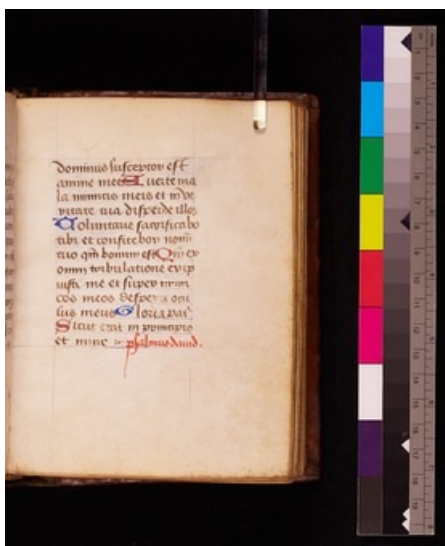 dominus susceptor est
anime mee Auerte ma
la inimicis meis et in ve
ritate tua disperde illos
Voluntarie sacrificabo
tibi et confitebor nomi
tuo qm bonum est Qm ex
omni tribulatione erip
uisti me et super inimi
cos meos despex ocu
lus meus Gloria pri
Sicut erat in principio
et nunc psalmus dauid.